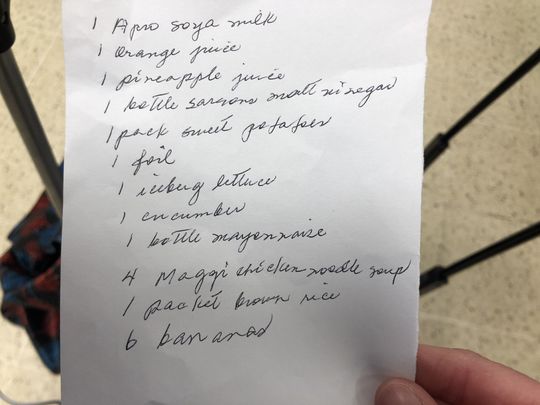 1 Apro soya milk
1 orange juice
1 pineapple juice
1 bottle sarsons malt vinegar
1 pack sweet potatoes
1 foil
1 iceberg lettuce
1 cucumber
1 bottle mayonnaize
4 Maggi chicken noodle soup
1 packet brown rice
6 bananas